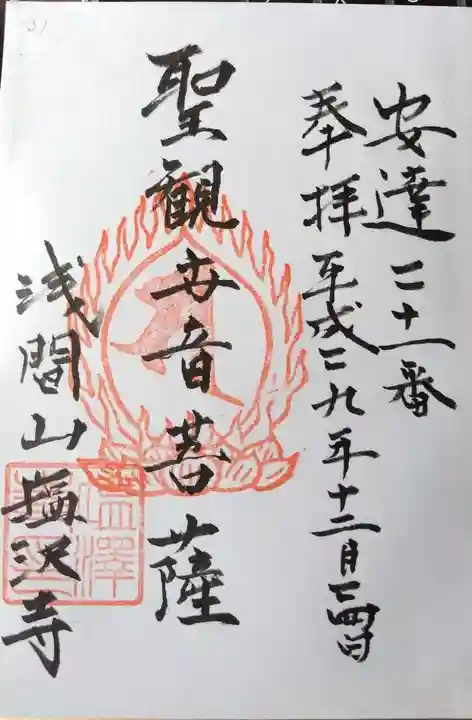 31
安達二十一番
奉拝 平成二九年十二月二四日
聖観世音菩薩
浅間山塩沢寺